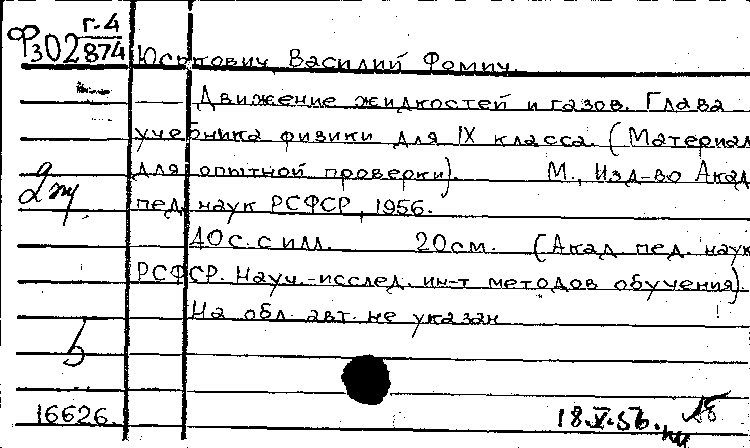 Фз02 г-4/874
Юськович, Василий Фомич.
Движение жидкостей и газов. Глава
учебника физики для IX класса. (Материал
для опытной проверки). М., Изд-во Акад.
пед. наук РСФСР, 1956.
40 с. с илл. 20 см. (Акад. пед. наук
РСФСР. Науч.-исслед. ин-т методов обучения)
На обл. авт. не указан
16626.
18.V.56.